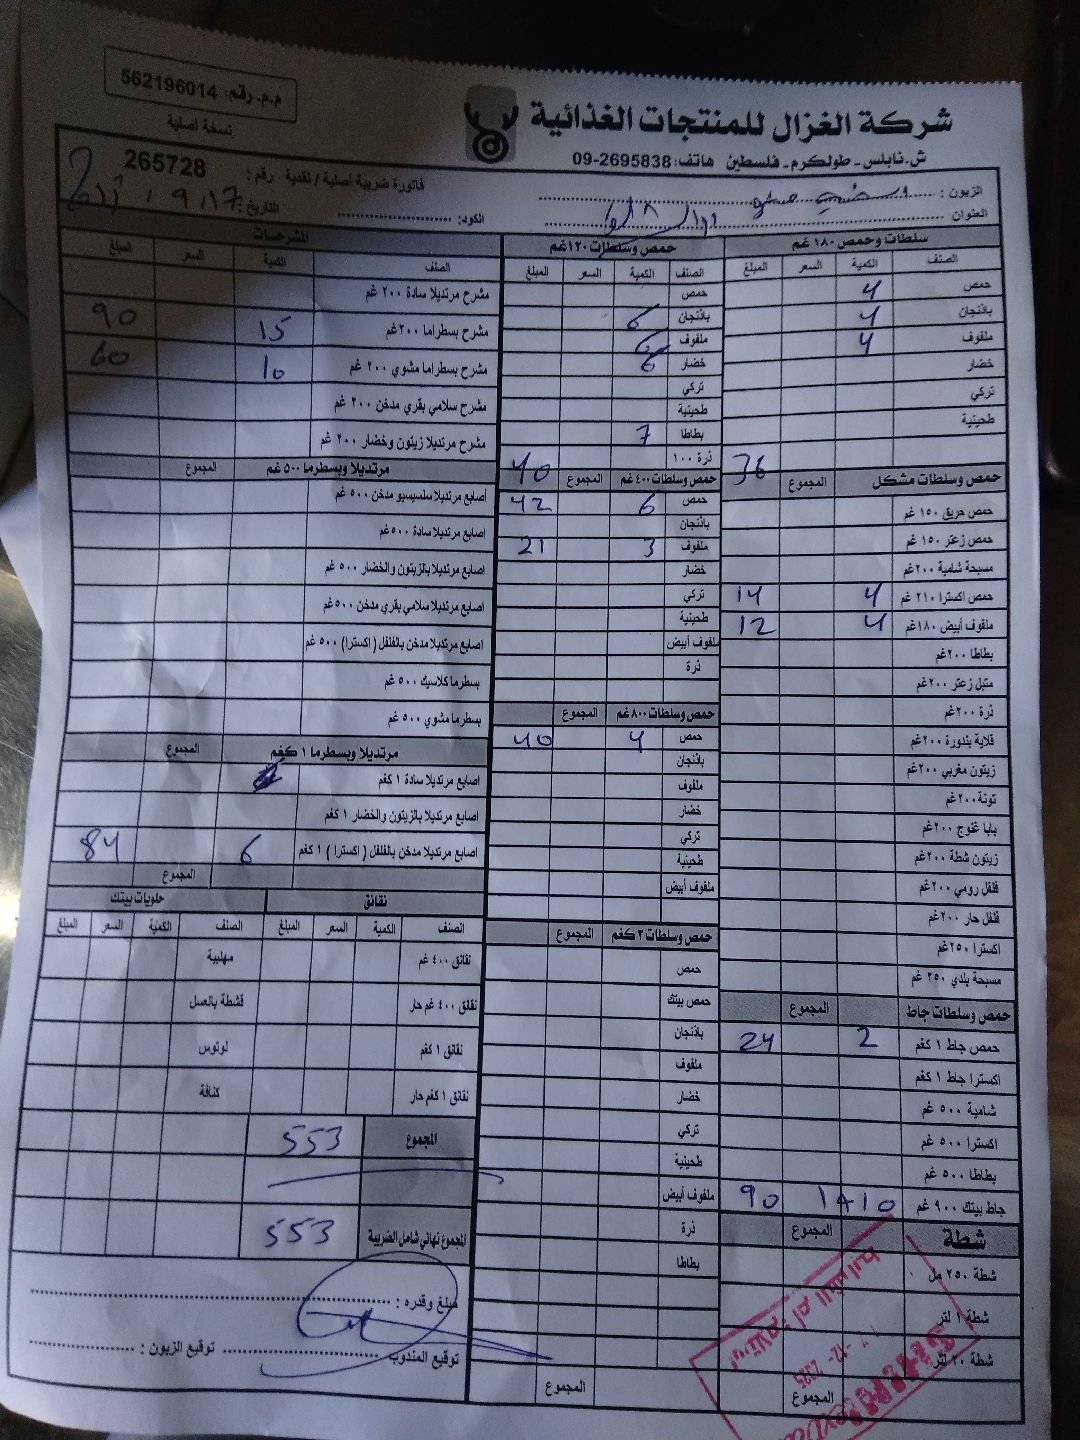 م.م. رقم: 562196014
نسخة أصلية
شركة الغزال للمنتجات الغذائية
ش.نابلس - طولكرم - فلسطين هاتف: 2695838-09
فاتورة ضريبة أصلية / نقدية رقم: 265728
الزبون:
العنوان
الكود:
التاريخ:
سلطات وحمص ١٨٠ غم
الصنف الكمية السعر المبلغ
حمص 4
باذنجان 4
ملفوف 4
خضار
تركي
طحينية
36
حمص وسلطات مشكل المجموع
حمص حريق ١٥٠ غم
حمص زعتر ١٥٠ غم
مسبحة شامية ٢٠٠غم
حمص اكسترا ٢١٠ غم 4 14
ملفوف أبيض ١٨٠غم 4 12
بطاطا ٢٠٠غم
متبل زعتر ٢٠٠غم
ذرة ٢٠٠غم
قلاية بندورة ٢٠٠غم
زيتون مغربي ٢٠٠غم
تونة ٢٠٠غم
بابا غنوج ٢٠٠غم
زيتون شطة ٢٠٠غم
فلفل رومي ٢٠٠غم
فلفل حار ٢٠٠غم
اكسترا ٢٥٠غم
مسبحة بلدي ٢٥٠ غم
حمص وسلطات جاط المجموع
حمص جاط ١ كغم 2 24
اكسترا جاط ١ كغم
شامية ٥٠٠ غم
اكسترا ٥٠٠ غم
بطاطا ٥٠٠ غم
جاط بيتك ٩٠٠ غم 90
شطة المجموع
شطة ٢٥٠ مل
شطة ١ لتر
شطة ٢٠ لتر
المجموع
حمص وسلطات ١٢٠غم
الصنف الكمية السعر المبلغ
حمص
باذنجان 6
ملفوف 6
خضار 6
تركي
طحينية
بطاطا 7
ذرة ١٠٠ 40
حمص وسلطات ٤٠٠غم المجموع
حمص 6 42
باذنجان
ملفوف 3 21
خضار
تركي
طحينية
ملفوف أبيض
ذرة
حمص وسلطات ٨٠٠غم المجموع
حمص 4 40
باذنجان
ملفوف
خضار
تركي
طحينية
ملفوف أبيض
حمص وسلطات ٣ كغم المجموع
حمص
حمص بيتك
باذنجان
ملفوف
خضار
تركي
طحينية
ملفوف أبيض
ذرة
بطاطا
المجموع
المشرحات
الصنف الكمية السعر المبلغ
مشرح مرتديلا سادة ٢٠٠ غم
مشرح بسطراما ٢٠٠غم 15 90
مشرح بسطراما مشوي ٢٠٠ غم 10 60
مشرح سلامي بقري مدخن ٢٠٠ غم
مشرح مرتديلا زيتون وخضار ٢٠٠ غم
مرتديلا وبسطرما ٥٠٠ غم المجموع
اصابع مرتديلا سلسيسيو مدخن ٥٠٠ غم
اصابع مرتديلا سادة ٥٠٠غم
اصابع مرتديلا بالزيتون والخضار ٥٠٠ غم
اصابع مرتديلا سلامي بقري مدخن ٥٠٠غم
اصابع مرتديلا مدخن بالفلفل (اكسترا) ٥٠٠ غم
بسطرما كلاسيك ٥٠٠ غم
بسطرما مشوي ٥٠٠ غم
مرتديلا وبسطرما ١ كغم المجموع
اصابع مرتديلا سادة ١ كغم
اصابع مرتديلا بالزيتون والخضار ١ كغم
اصابع مرتديلا مدخن بالفلفل (اكسترا) ١ كغم 6 84
المجموع
نقانق
حلويات بيتك
الصنف الكمية السعر المبلغ الصنف الكمية السعر المبلغ
نقانق ٤٠٠ غم مهلبية
نقانق ٤٠٠ غم حار قشطة بالعسل
نقانق ١ كغم لوتوس
نقانق ١ كغم حار كنافة
المجموع 553
المجموع نهائي شامل الضريبة 553
مبلغ وقدره:
توقيع المندوب توقيع الزبون: